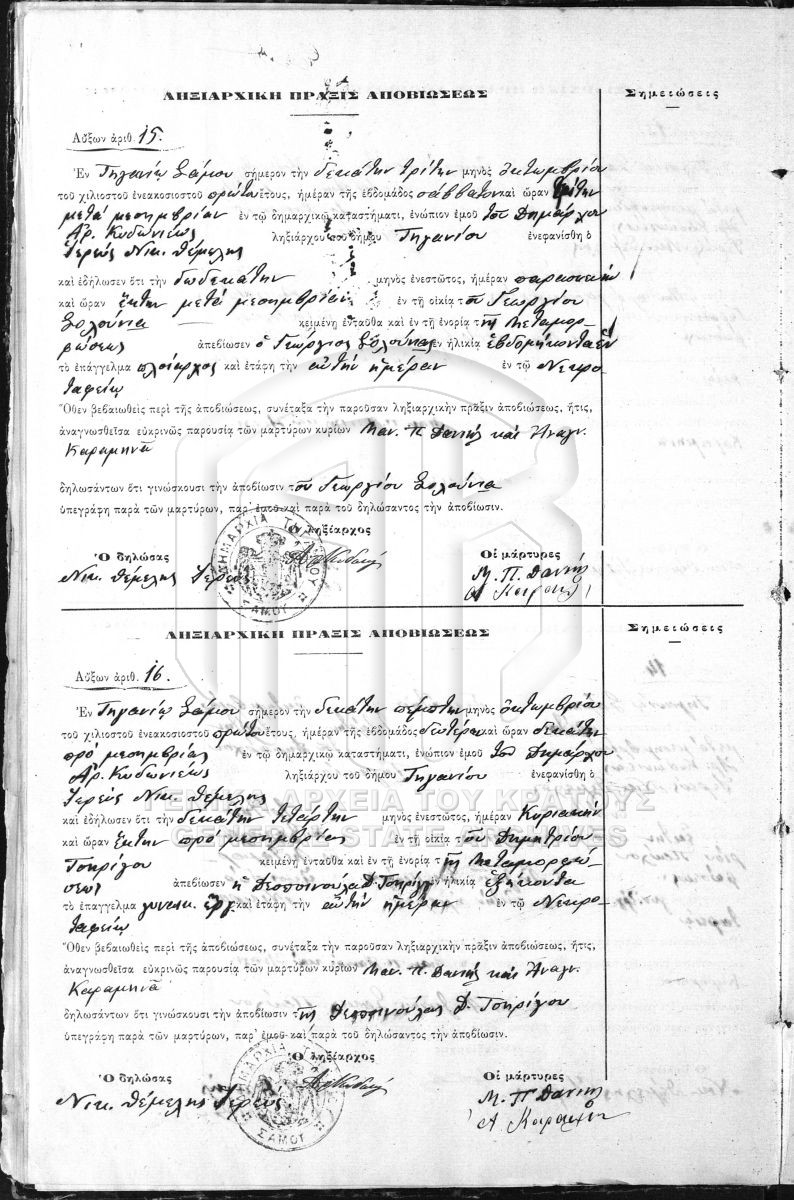 ΛΗΞΙΑΡΧΙΚΗ ΠΡΑΞΙΣ ΑΠΟΒΙΩΣΕΩΣ
Σημειώσεις
Αὔξων ἀριθ. 15.
Ἐν Τηγανίῳ Σάμου σήμερον τὴν δεκάτην τρίτην μηνὸς Ὀκτωμβρίου
τοῦ χιλιοστοῦ ἐνεακοσιοστοῦ πρώτου ἔτους, ἡμέραν τῆς ἑβδομάδος σάββατον καὶ ὥραν τρίτην
μετὰ μεσημβρίαν ἐν τῷ δημαρχικῷ καταστήματι, ἐνώπιον ἐμοῦ τοῦ Δημάρχου
Ἀρ. Κυδωνιέως ληξιάρχου τοῦ δήμου Τηγανίου ἐνεφανίσθη ὁ
Ἱερεὺς Νικ. Θέμελης
καὶ ἐδήλωσεν ὅτι τὴν δωδεκάτην μηνὸς ἐνεστῶτος, ἡμέραν παρασκευὴν
καὶ ὥραν ἕκτην μετὰ μεσημβρίαν ἐν τῇ οἰκίᾳ τοῦ Γεωργίου
Σολούνια κειμένῃ ἐνταῦθα καὶ ἐν τῇ ἐνορίᾳ τῆς Μεταμορ-
φώσεως ἀπεβίωσεν ὁ Γεώργιος Σολούνιας ἐν ἡλικίᾳ ἑβδομήκοντα ἓν
τὸ ἐπάγγελμα πλοίαρχος καὶ ἐτάφη τὴν αὐτὴν ἡμέραν ἐν τῷ Νεκρο-
ταφείῳ
Ὅθεν βεβαιωθεὶς περὶ τῆς ἀποβιώσεως, συνέταξα τὴν παροῦσαν ληξιαρχικὴν πρᾶξιν ἀποβιώσεως, ἥτις,
ἀναγνωσθεῖσα εὐκρινῶς παρουσίᾳ τῶν μαρτύρων κυρίων Μαν. Π. Δανιὴλ καὶ Ἀναγν.
Καραμηνᾶ
δηλωσάντων ὅτι γινώσκουσι τὴν ἀποβίωσιν τοῦ Γεωργίου Σολούνια
ὑπεγράφη παρὰ τῶν μαρτύρων, παρ' ἐμοῦ καὶ παρὰ τοῦ δηλώσαντος τὴν ἀποβίωσιν.
Ὁ ληξίαρχος
Ὁ δηλώσας
Οἱ μάρτυρες
Νικ. Θέμελης Ἱερεύς
Μ. Π. Δανιὴλ
ΔΗΜΑΡΧΙΑ ΤΗΓΑΝΙΟΥ ΣΑΜΟΥ
ΛΗΞΙΑΡΧΙΚΗ ΠΡΑΞΙΣ ΑΠΟΒΙΩΣΕΩΣ
Σημειώσεις
Αὔξων ἀριθ. 16.
Ἐν Τηγανίῳ Σάμου σήμερον τὴν δεκάτην πέμπτην μηνὸς Ὀκτωμβρίου
τοῦ χιλιοστοῦ ἐνεακοσιοστοῦ πρώτου ἔτους, ἡμέραν τῆς ἑβδομάδος δευτέραν καὶ ὥραν δεκάτην
πρὸ μεσημβρίας ἐν τῷ δημαρχικῷ καταστήματι, ἐνώπιον ἐμοῦ τοῦ Δημάρχου
Ἀρ. Κυδωνιέως ληξιάρχου τοῦ δήμου Τηγανίου ἐνεφανίσθη ὁ
Ἱερεὺς Νικ. Θέμελης
ΓΕΝΙΚΑ ΑΡΧΕΙΑ ΤΟΥ ΚΡΑΤΟΥΣ
καὶ ἐδήλωσεν ὅτι τὴν δεκάτην τετάρτην μηνὸς ἐνεστῶτος, ἡμέραν Κυριακὴν
GENERAL STATE ARCHIVES
καὶ ὥραν ἕκτην πρὸ μεσημβρίας ἐν τῇ οἰκίᾳ τοῦ Δημητρίου
Τσηρίγου κειμένῃ ἐνταῦθα καὶ ἐν τῇ ἐνορίᾳ τῆς Μεταμορφώ-
σεως ἀπεβίωσεν ἡ Δεσποινούλα Δ. Τσηρίγου ἐν ἡλικίᾳ ἑξήκοντα
τὸ ἐπάγγελμα γυναικ. ἔργ. καὶ ἐτάφη τὴν αὐτὴν ἡμέραν ἐν τῷ Νεκρο-
ταφείῳ
Ὅθεν βεβαιωθεὶς περὶ τῆς ἀποβιώσεως, συνέταξα τὴν παροῦσαν ληξιαρχικὴν πρᾶξιν ἀποβιώσεως, ἥτις,
ἀναγνωσθεῖσα εὐκρινῶς παρουσίᾳ τῶν μαρτύρων κυρίων Μαν. Π. Δανιὴλ καὶ Ἀναγν.
Καραμηνᾶ
δηλωσάντων ὅτι γινώσκουσι τὴν ἀποβίωσιν τῆς Δεσποινούλας Δ. Τσηρίγου
ὑπεγράφη παρὰ τῶν μαρτύρων, παρ' ἐμοῦ καὶ παρὰ τοῦ δηλώσαντος τὴν ἀποβίωσιν.
Ὁ ληξίαρχος
Ὁ δηλώσας
Οἱ μάρτυρες
Νικ. Θέμελης Ἱερεύς
Μ. Π. Δανιὴλ
ΣΑΜΟΥ